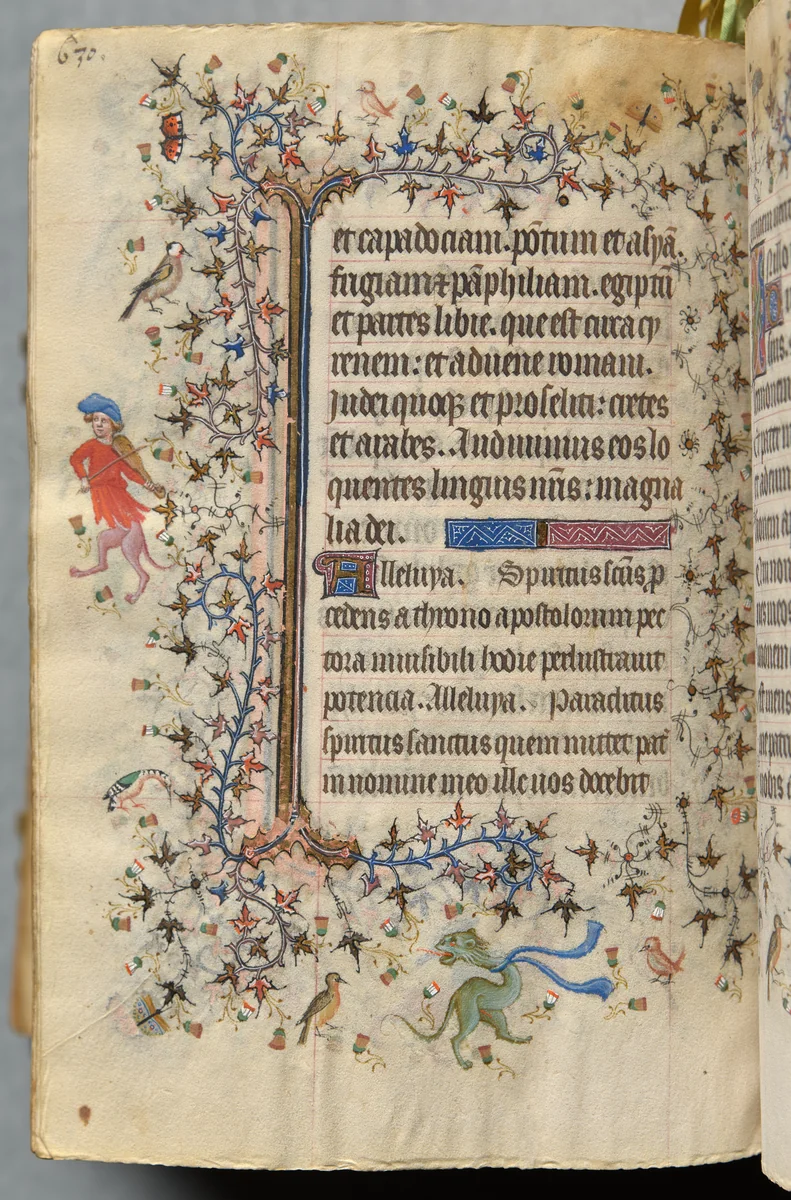 670.
et capadociam. põtum et asyã.
frigiam ⁊ pãphiliam. egiptũ
et partes libie. que est circa cy
renem: et aduene romani.
Judei quoqꝫ et proseliti: cretes
et arabes. Audiuimus eos lo
quentes linguis nr̃is: magna
lia dei.
Alleluya. Spiritus sc̃us ꝓ
cedens a throno apostolorum pec
tora inuisibili hodie perlustrauit
potencia. Alleluya. Paraclitus
spiritus sanctus quem mittet pat̃
in nomine meo ille uos docebit